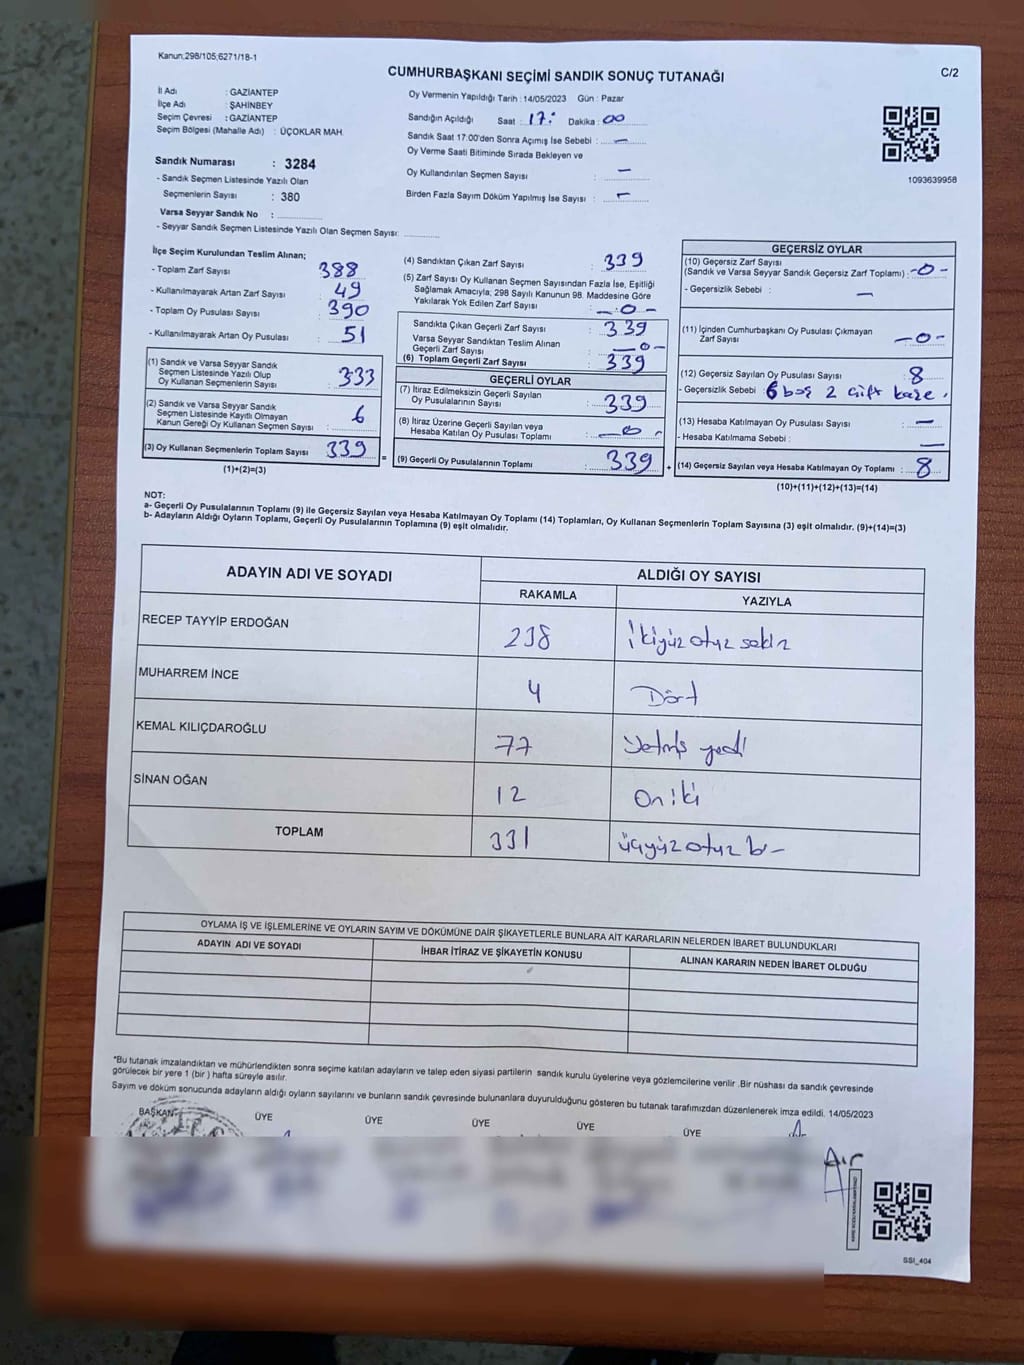 Kanun,298/105,6271/18-1
C/2
CUMHURBAŞKANI SEÇİMİ SANDIK SONUÇ TUTANAĞI
İl Adı : GAZİANTEP
İlçe Adı : ŞAHİNBEY
Seçim Çevresi : GAZİANTEP
Seçim Bölgesi (Mahalle Adı) : ÜÇOKLAR MAH.
Sandık Numarası : 3284
- Sandık Seçmen Listesinde Yazılı Olan
Seçmenlerin Sayısı : 380
Varsa Seyyar Sandık No :
- Seyyar Sandık Seçmen Listesinde Yazılı Olan Seçmen Sayısı:
Oy Vermenin Yapıldığı Tarih : 14/05/2023 Gün : Pazar
Sandığın Açıldığı Saat : 17: Dakika : 00
Sandık Saat 17:00'den Sonra Açımış İse Sebebi : —
Oy Verme Saati Bitiminde Sırada Bekleyen ve
Oy Kullandırılan Seçmen Sayısı : —
Birden Fazla Sayım Döküm Yapılmış İse Sayısı : —
1093639958
İlçe Seçim Kurulundan Teslim Alınan;
- Toplam Zarf Sayısı : 388
- Kullanılmayarak Artan Zarf Sayısı : 49
- Toplam Oy Pusulası Sayısı : 390
- Kullanılmayarak Artan Oy Pusulası : 51
(1) Sandık ve Varsa Seyyar Sandık
Seçmen Listesinde Yazılı Olup
Oy Kullanan Seçmenlerin Sayısı : 333
(2) Sandık ve Varsa Seyyar Sandık
Seçmen Listesinde Kayıtlı Olmayan
Kanun Gereği Oy Kullanan Seçmen Sayısı : 6
(3) Oy Kullanan Seçmenlerin Toplam Sayısı : 339
(1)+(2)=(3)
=
(4) Sandıktan Çıkan Zarf Sayısı : 339
(5) Zarf Sayısı Oy Kullanan Seçmen Sayısından Fazla İse, Eşitliği
Sağlamak Amacıyla, 298 Sayılı Kanunun 98. Maddesine Göre
Yakılarak Yok Edilen Zarf Sayısı : -0-
Sandıkta Çıkan Geçerli Zarf Sayısı : 339
Varsa Seyyar Sandıktan Teslim Alınan
Geçerli Zarf Sayısı : -0-
(6) Toplam Geçerli Zarf Sayısı : 339
GEÇERLİ OYLAR
(7) İtiraz Edilmeksizin Geçerli Sayılan
Oy Pusulalarının Sayısı : 339
(8) İtiraz Üzerine Geçerli Sayılan veya
Hesaba Katılan Oy Pusulası Toplamı : -0-
(9) Geçerli Oy Pusulalarının Toplamı : 339
+
GEÇERSİZ OYLAR
(10) Geçersiz Zarf Sayısı
(Sandık ve Varsa Seyyar Sandık Geçersiz Zarf Toplamı) : -0-
- Geçersizlik Sebebi : —
(11) İçinden Cumhurbaşkanı Oy Pusulası Çıkmayan
Zarf Sayısı : -0-
(12) Geçersiz Sayılan Oy Pusulası Sayısı : 8
- Geçersizlik Sebebi : 6 boş 2 çift kaze.
(13) Hesaba Katılmayan Oy Pusulası Sayısı : —
- Hesaba Katılmama Sebebi : —
(14) Geçersiz Sayılan veya Hesaba Katılmayan Oy Toplamı : 8
(10)+(11)+(12)+(13)=(14)
NOT:
a- Geçerli Oy Pusulalarının Toplamı (9) ile Geçersiz Sayılan veya Hesaba Katılmayan Oy Toplamı (14) Toplamları, Oy Kullanan Seçmenlerin Toplam Sayısına (3) eşit olmalıdır. (9)+(14)=(3)
b- Adayların Aldığı Oyların Toplamı, Geçerli Oy Pusulalarının Toplamına (9) eşit olmalıdır.
ADAYIN ADI VE SOYADI
ALDIĞI OY SAYISI
RAKAMLA YAZIYLA
RECEP TAYYİP ERDOĞAN 238 İkiyüz otuz sekiz
MUHARREM İNCE 4 Dört
KEMAL KILIÇDAROĞLU 77 Yetmiş yedi
SİNAN OĞAN 12 On iki
TOPLAM 331 üçyüz otuz bir
OYLAMA İŞ VE İŞLEMLERİNE VE OYLARIN SAYIM VE DÖKÜMÜNE DAİR ŞİKAYETLERLE BUNLARA AİT KARARLARIN NELERDEN İBARET BULUNDUKLARI
ADAYIN ADI VE SOYADI İHBAR İTİRAZ VE ŞİKAYETİN KONUSU ALINAN KARARIN NEDEN İBARET OLDUĞU
*Bu tutanak imzalandıktan ve mühürlendikten sonra seçime katılan adayların ve talep eden siyasi partilerin sandık kurulu üyelerine veya gözlemcilerine verilir .Bir nüshası da sandık çevresinde
görülecek bir yere 1 (bir ) hafta süreyle asılır.
Sayım ve döküm sonucunda adayların aldığı oyların sayılarını ve bunların sandık çevresinde bulunanlara duyurulduğunu gösteren bu tutanak tarafımızdan düzenlenerek imza edildi. 14/05/2023
BAŞKAN ÜYE ÜYE ÜYE ÜYE ÜYE
SSI_404